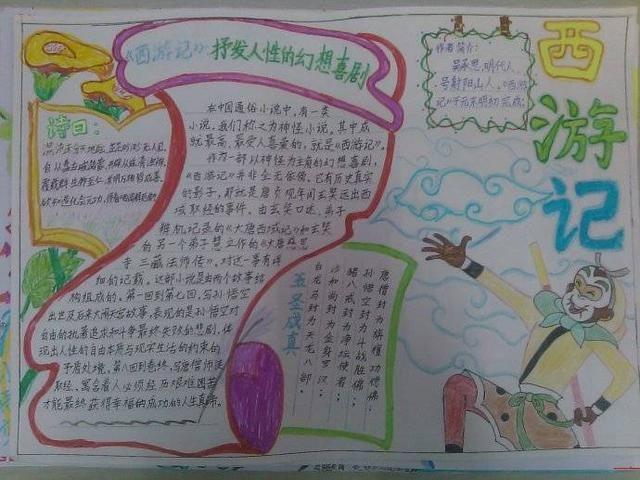 《西游记》:抒发人性的幻想喜剧
西
游
记
作者简介:
吴承恩,明代人,
号射阳山人,《西游
记》于元末明初完成。
诗曰:
混沌未分天地乱,茫茫渺渺无人见。
自从盘古破鸿蒙,开辟从兹清浊辨。
覆载群生仰至仁,发明万物皆成善。
欲知造化会元功,须看西游释厄传。
在中国通俗小说中,有一类
小说,我们称之为神怪小说,其中成
就最高、最受人喜爱的,就是《西游记》。
作为一部以神怪为主角的幻想喜剧,
《西游记》并非全无依傍,它有历史真实
的影子,那就是唐贞观年间玄奘远出西
域取经的事件。由玄奘口述,弟子
辩机记录的《大唐西域记》和玄奘
的另一个弟子慧立作的《大唐慈恩
寺三藏法师传》,对这一事有详
细的记载。这部小说是由两个故事结
构组成的,第一回到第七回,写孙悟空
出世及后来大闹天宫故事,表现的是孙悟空对
自由的执著追求和斗争最终失败的悲剧,体
现出人性的自由本质与现实生活的约束的
矛盾处境。第八回到卷终,写唐僧师徒
取经,寓含着人必须经历艰难困苦
才能最终获得幸福的成功的人生真谛。
五圣成真
唐僧封为旃檀功德佛;
孙悟空封为斗战胜佛;
猪八戒封为净坛使者;
沙和尚封为金身罗汉;
白龙马封为天龙八部;